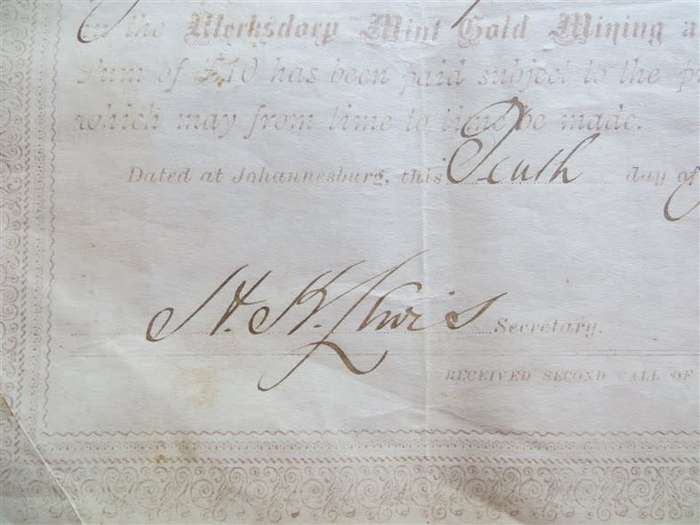 in the Klerksdorp Mint Gold Mining a
Sum of £10 has been paid subject to the p
which may from time to time be made.
Dated at Johannesburg, this Tenth day of
Secretary.
RECEIVED SECOND CALL OF